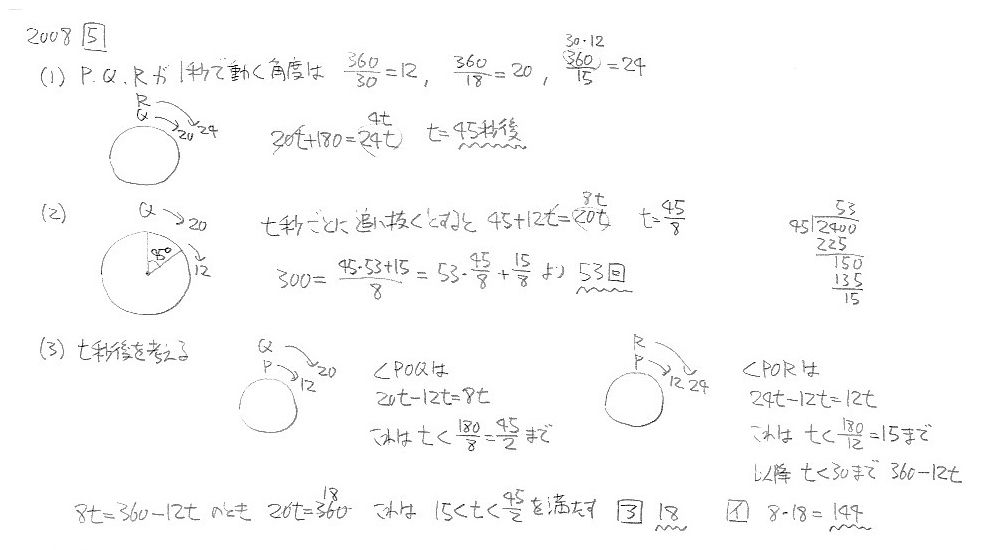 2008 5
(1) P.Q.Rが1秒で動く角度は 360/30=12, 360/18=20, 30・12 360/15=24
R
Q 20 24
20t+180=24t 4t t=45秒後
(2) Q 20
45° 12
t秒ごとに追い抜くとすると 45+12t=20t 8t t=45/8
300=(45・53+15)/8=53・45/8+15/8 より 53回
53
45)2400
225
150
135
15
(3) t秒後を考える
Q
P 12 20
∠POQは
20t-12t=8t
これは t<180/8=45/2まで
R
P 12 24
∠PORは
24t-12t=12t
これは t<180/12=15まで
以降 t<30まで 360-12t
8t=360-12t のとき 20t=360 18 これは 15<t<45/2を満たす ヨ 18 イ 8・18=144